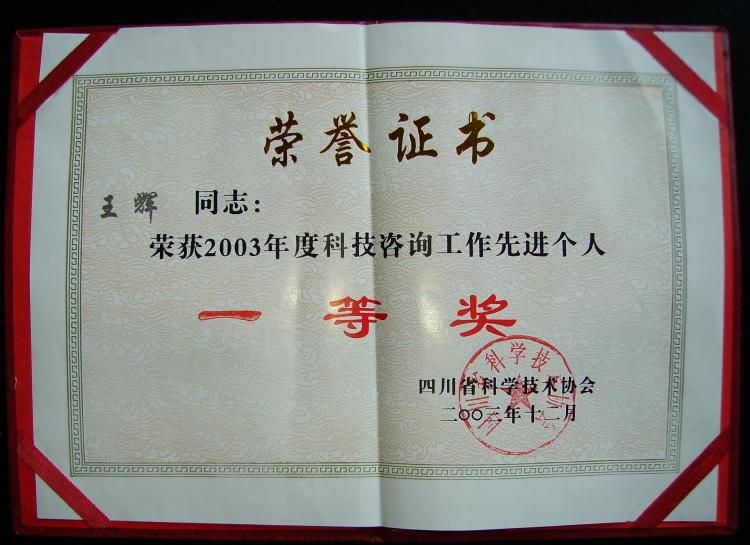 荣誉证书
王辉 同志：
荣获2003年度科技咨询工作先进个人
一等奖
四川省科学技术协会
二〇〇三年十二月
四川省科学技术协会